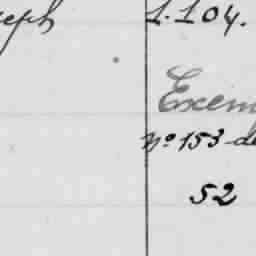 eph 1.104.
Exem
Nº 153 de
52